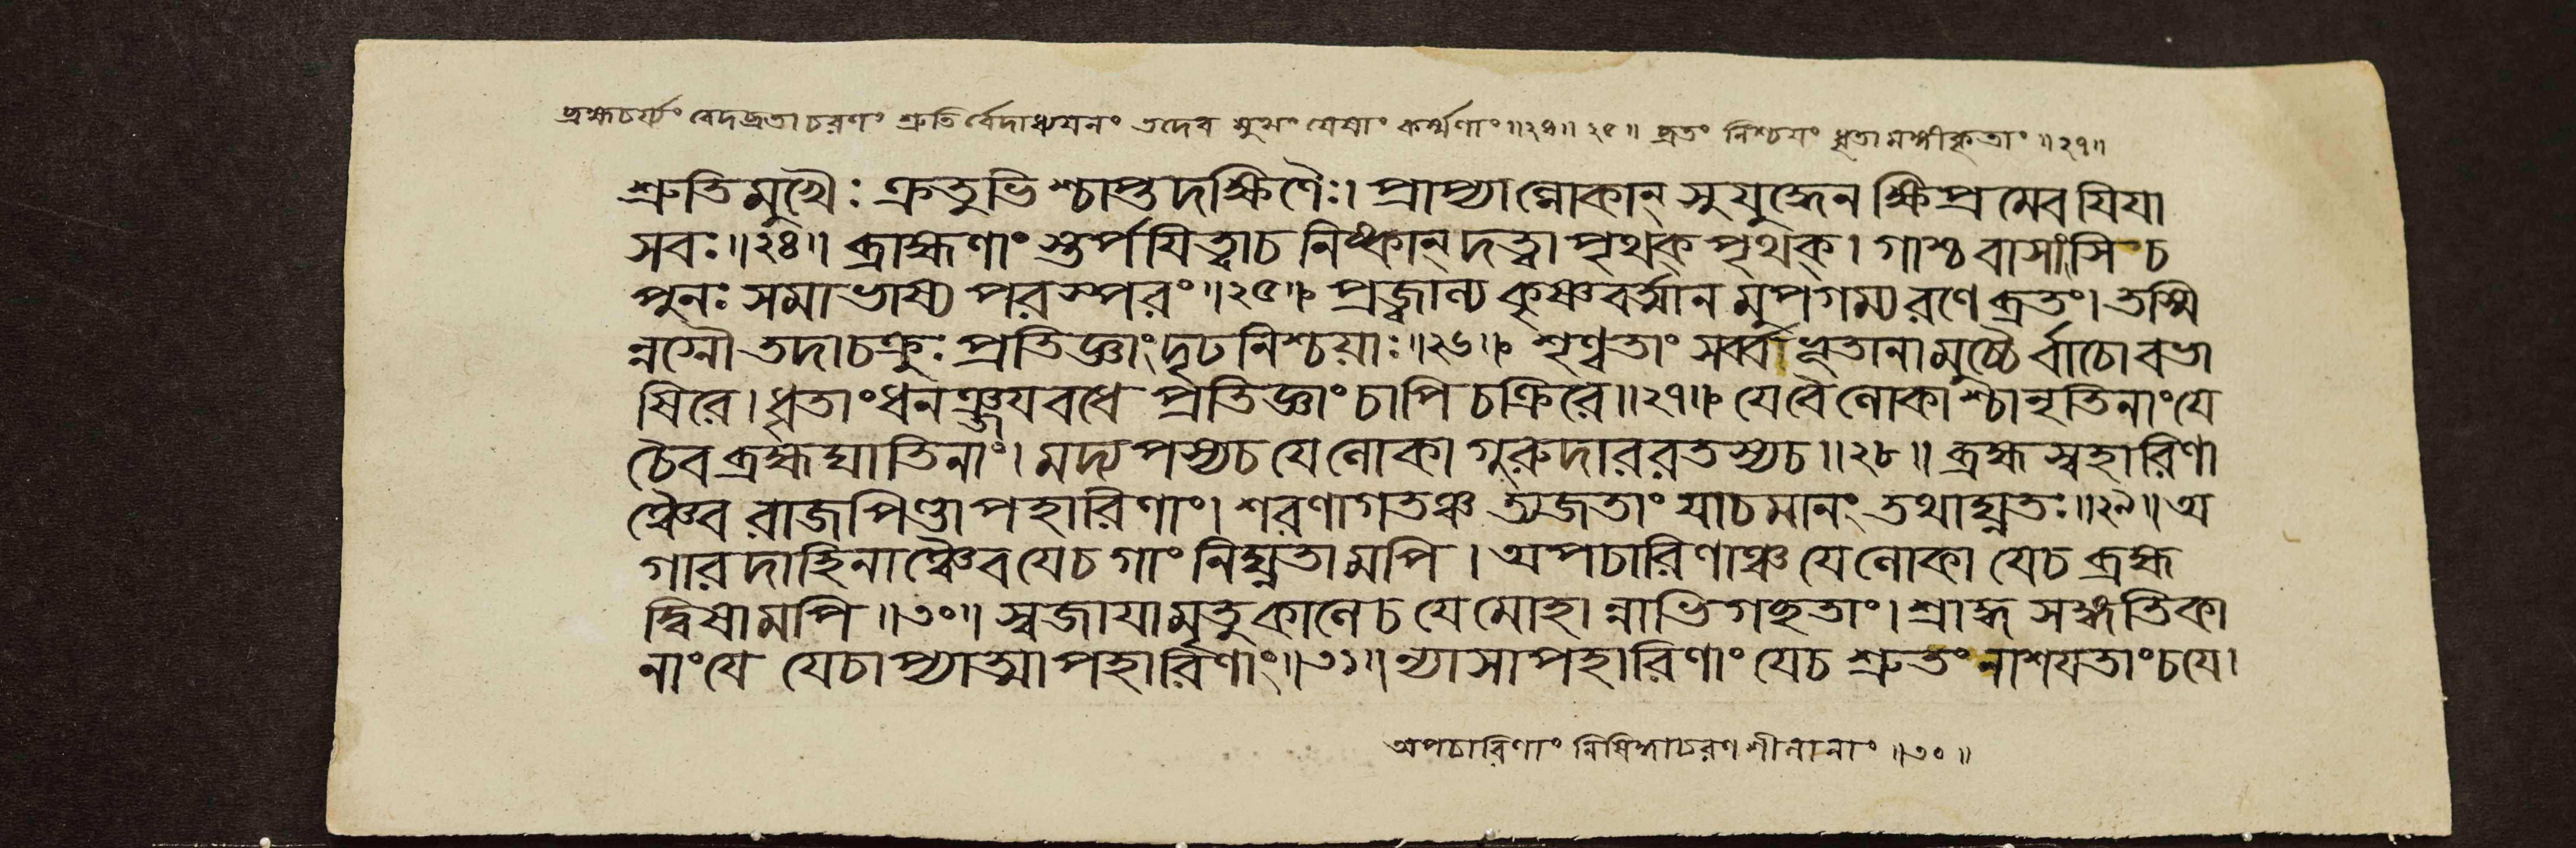 ব্রহ্মচর্য্যং বেদব্রতাচরণং শ্রুতির্বেদাধ্যয়নং তদেব মুখং যেষাং কর্ম্মণাং॥২৪॥২৫॥ ব্রতং নিশ্চয়ং ধৃতামঙ্গীকৃতাং॥২৭॥
শ্রুতিমুখৈঃ ক্রতুভিশ্চাপ্তদক্ষিণৈঃ। প্রাপ্যাল্লোকান্ সুযুদ্ধেন ক্ষিপ্রমেব যিযা
সবঃ॥২৪॥ ব্রাহ্মণাংস্তর্পযিত্বাচ নিষ্কান্ দত্ত্বা পৃথক্ পৃথক্। গাশ্চ বাসাংসি চ
পুনঃ সমাভাষ্য পরস্পরং॥২৫॥ প্রজ্বাল্য কৃষ্ণবর্ত্মান মুপগম্য রণে ব্রতং। তস্মি
ন্নগ্নৌ তদাচক্রুঃ প্রতিজ্ঞাং দৃঢনিশ্চয়াঃ॥২৬॥ শৃণ্বতাং সর্ব্বভূতানামুচ্চৈর্বাচোবভা
ষিরে। ধৃতাং ধনঞ্জযবধে প্রতিজ্ঞাং চাপি চক্রিরে॥২৭॥ যেবৈলোকাশ্চানৃতিনাং যে
চৈব ব্রহ্মঘাতিনাং। মদ্যপস্যচ যেলোকা গুরুদাররতস্যচ॥২৮॥ ব্রহ্মস্বহারিণা
ঞ্চৈব রাজপিণ্ডাপহারিণাং। শরণাগতঞ্চ ত্যজতাং যাচমানং তথাঘ্নতঃ॥২৯॥ অ
গারদাহিনাঞ্চৈব যেচ গাং নিঘ্নতামপি। অপচারিণাঞ্চ যেলোকা যেচ ব্রহ্ম
দ্বিষামপি॥৩০॥ স্বজাযামৃতুকালেচ যেমোহান্নাভিগছতাং। শ্রাদ্ধসঙ্গতিকা
নাং যে যেচাপ্যাত্মাপহারিণাং॥৩১॥ ন্যাসাপহারিণাং যেচ শ্রুতং নাশযতাং চযে।
অপচারিণাং নিষিদ্ধাচরণশীলানাং॥৩০॥